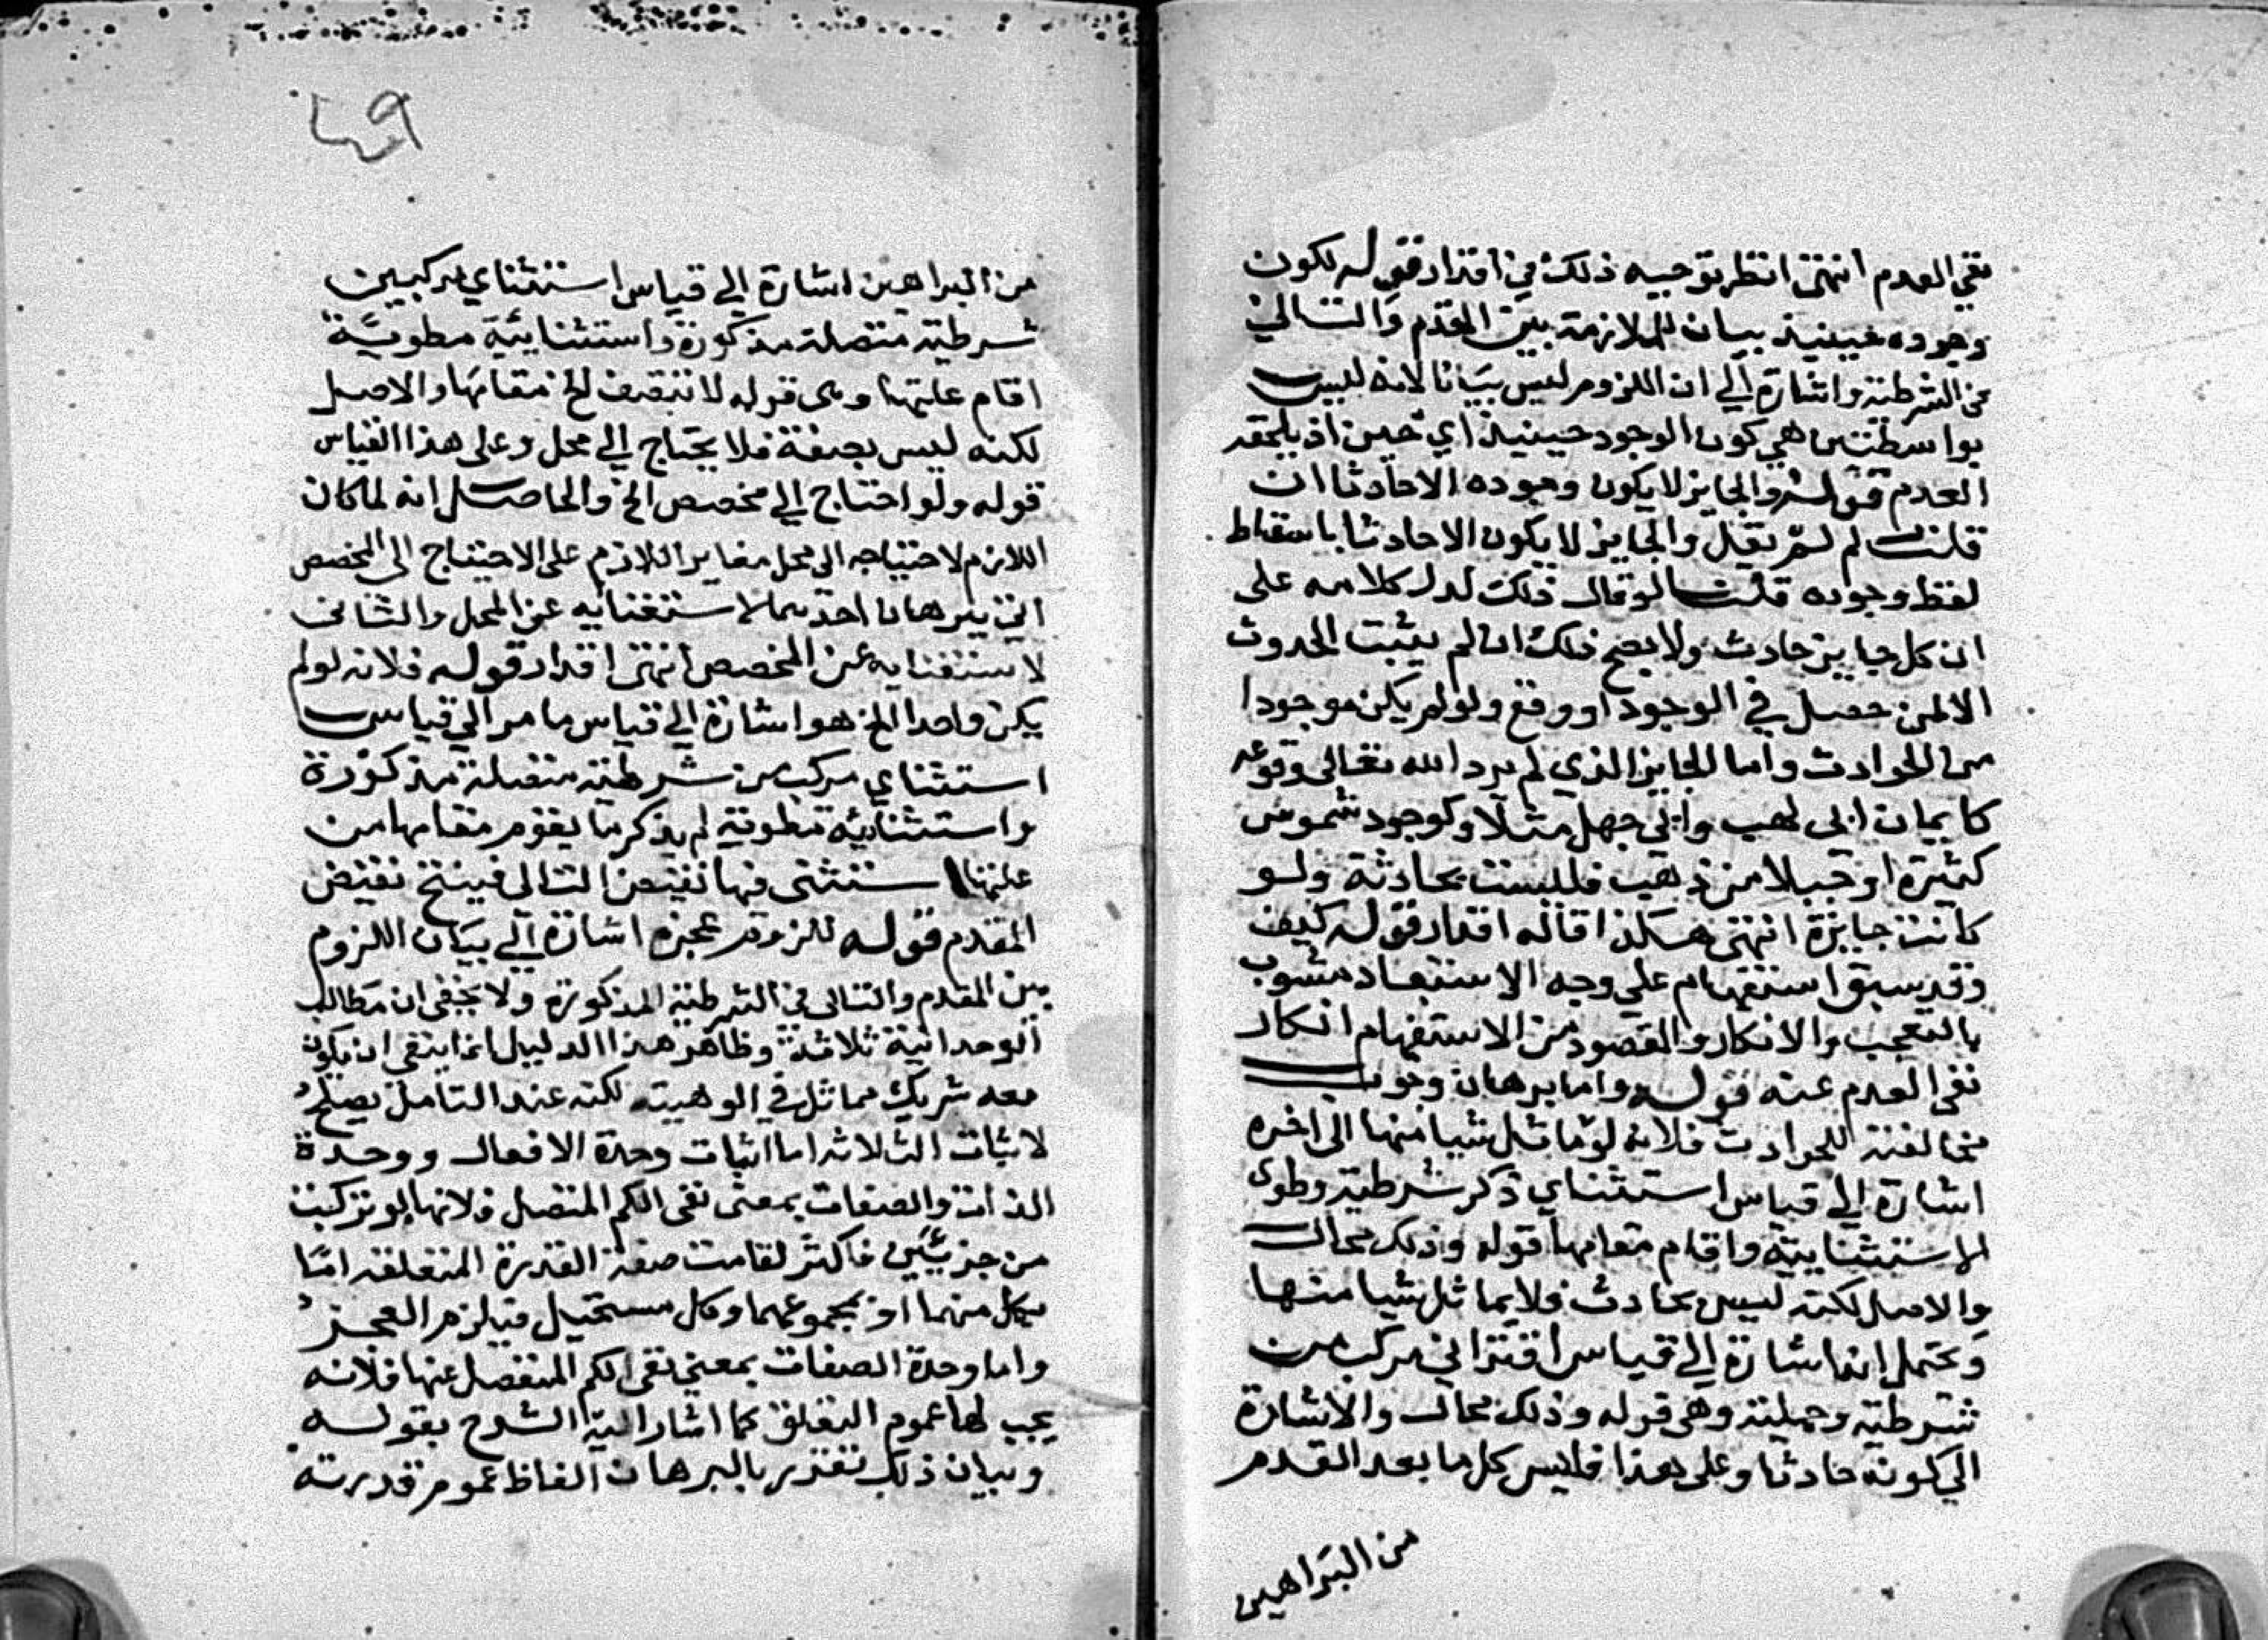 نفي العدم انتهى انظر توجيه ذلك في اقدار قوله لكون
وجوده حينيذ بيان للملازمة بين المقدم والتالي
في الشرطية واشارة الي ان اللزوم ليس بيانا لانه ليس
بواسطة هي كون الوجود حينيذ اي حين اذ يلحقه
العدم قوله والجايز لا يكون وجوده الا حادثا ان
قلت لم لم يقل والجايز لا يكون الا حادثا باسقاط
لفظ وجوده قلت لو قال ذلك لدل كلامه على
ان كل جايز حادث ولا يصح ذلك اذ لم يثبت الحدوث
الا لمن حصل في الوجود او وقع ولو لم يكن موجودا
من الحوادث واما الجايز الذي لم يرد الله تعالى وقوعه
كايمان ابي لهب وابي جهل مثلا وكوجود شموس
كثيرة او جبلا من ذهب فليست بحادثة ولو
كانت جايزة انتهى هكذا قاله اقدار قوله كيف
وقد سبق استفهام علي وجه الاستبعاد مشوب
بالتعجب والانكار والمقصود من الاستفهام انكار
نفي العدم عنه قوله واما برهان وجوب
مخالفته للحوادث فلانه لو ماثل شيا منها الى اخره
اشارة الي قياس استثناي ذكر شرطية وطوى
الاستثنايية واقام مقامها قوله وذلك محال
والاصل لكنه ليس بحادث فلا يماثل شيا منها
ويحتمل انه اشارة الي قياس اقتراني مركب من
شرطية وحملية وهي قوله وذلك محال والاشارة
الي كونه حادثا وعلى هذا فليس كل ما بعد القدم
من البراهين
٤٩
من البراهين اشارة الي قياس استثناي مركب من
شرطية متصلة مذكورة واستثنايية مطوية
اقام علتها وهي قوله لا تتصف الخ مقامها والاصل
لكنه ليس بصفة فلا يحتاج الي محل وعلى هذا القياس
قوله ولو احتاج الي مخصص الخ والحاصل انه لما كان
اللازم لاحتياجه الى محل مغاير اللازم على الاحتياج الى المخصص
اتي ببرهانا احدهما لاستغنايه عن المحل والثاني
لاستغنايه عن المخصص انتهى اقدار قوله فلانه لو لم
يكن واحدا الخ هو اشارة الي قياس ما مر الي قياس
استثناي مركب من شرطية متصلة مذكورة
واستثنايية مطوية لم يذكر ما يقوم مقامها من
علتها استثنى فيها نقيض التالي فينتج نقيض
المقدم قوله للزوم عجزه اشارة الي بيان اللزوم
بين المقدم والتالى في الشرطية المذكورة ولا يخفى ان مطالب
الوحدانية ثلاثة وظاهر هذا الدليل انما ينفي ان يكون
معه شريك مماثل في الوهيته لكنه عند التامل يصلح
لاثبات الثلاثة اما اثبات وحدة الافعال ووحدة
الذات والصفات بمعنى نفي الكم المتصل فلانها لو تركبت
من جزئين فاكثر لقامت صفة القدرة المتعلقة اما
بكل منهما او بمجموعهما وكل مستحيل فيلزم العجز
واما وحدة الصفات بمعنى نفي الكم المنفصل عنها فلانه
يجب لها عموم التعلق كما اشار اليه الشرح بقوله
وبيان ذلك تقدير بالبرهان الفاظ عموم قدرته